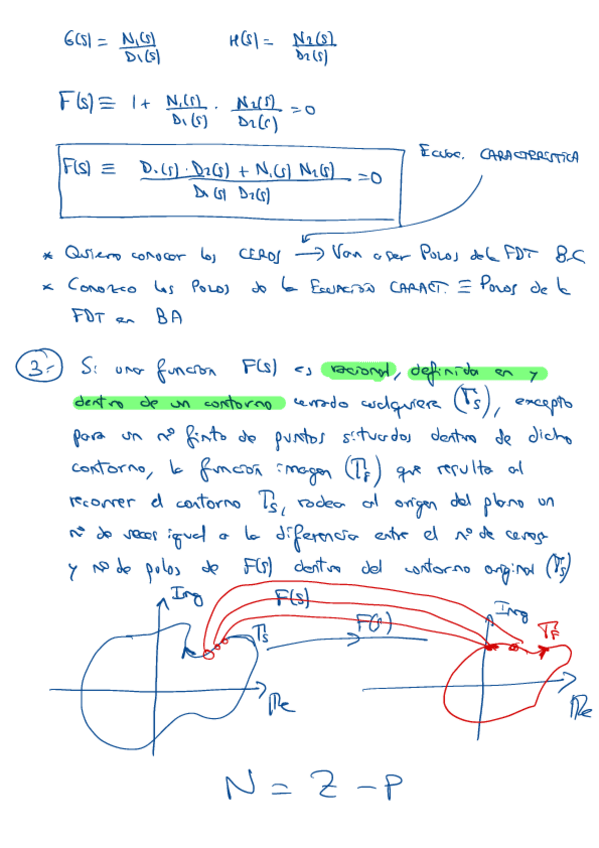 G(s) = N1(s) / D1(s)    H(s) = N2(s) / D2(s)
F(s) ≡ 1 + N1(s) / D1(s) · N2(s) / D2(s) = 0
F(s) ≡ D1(s) · D2(s) + N1(s) N2(s) / D1(s) D2(s) = 0
Ecuac. CARACTERÍSTICA
* Quiero conocer los CEROS → Van a ser Polos de la FDT B.C
* Conozco los Polos de la Ecuación CARACT. ≡ Polos de la
FDT en BA
3.- Si una función F(s) es racional, definida en y
dentro de un contorno cerrado cualquiera (Γs), excepto
para un nº finito de puntos situados dentro de dicho
contorno, la función imagen (ΓF) que resulta al
recorrer el contorno Γs, rodea al origen del plano un
nº de veces igual a la diferencia entre el nº de ceros
y nº de polos de F(s) dentro del contorno original (Γs)
Img F(s) Γs F(s) Img ΓF
Re Re
N = Z - P